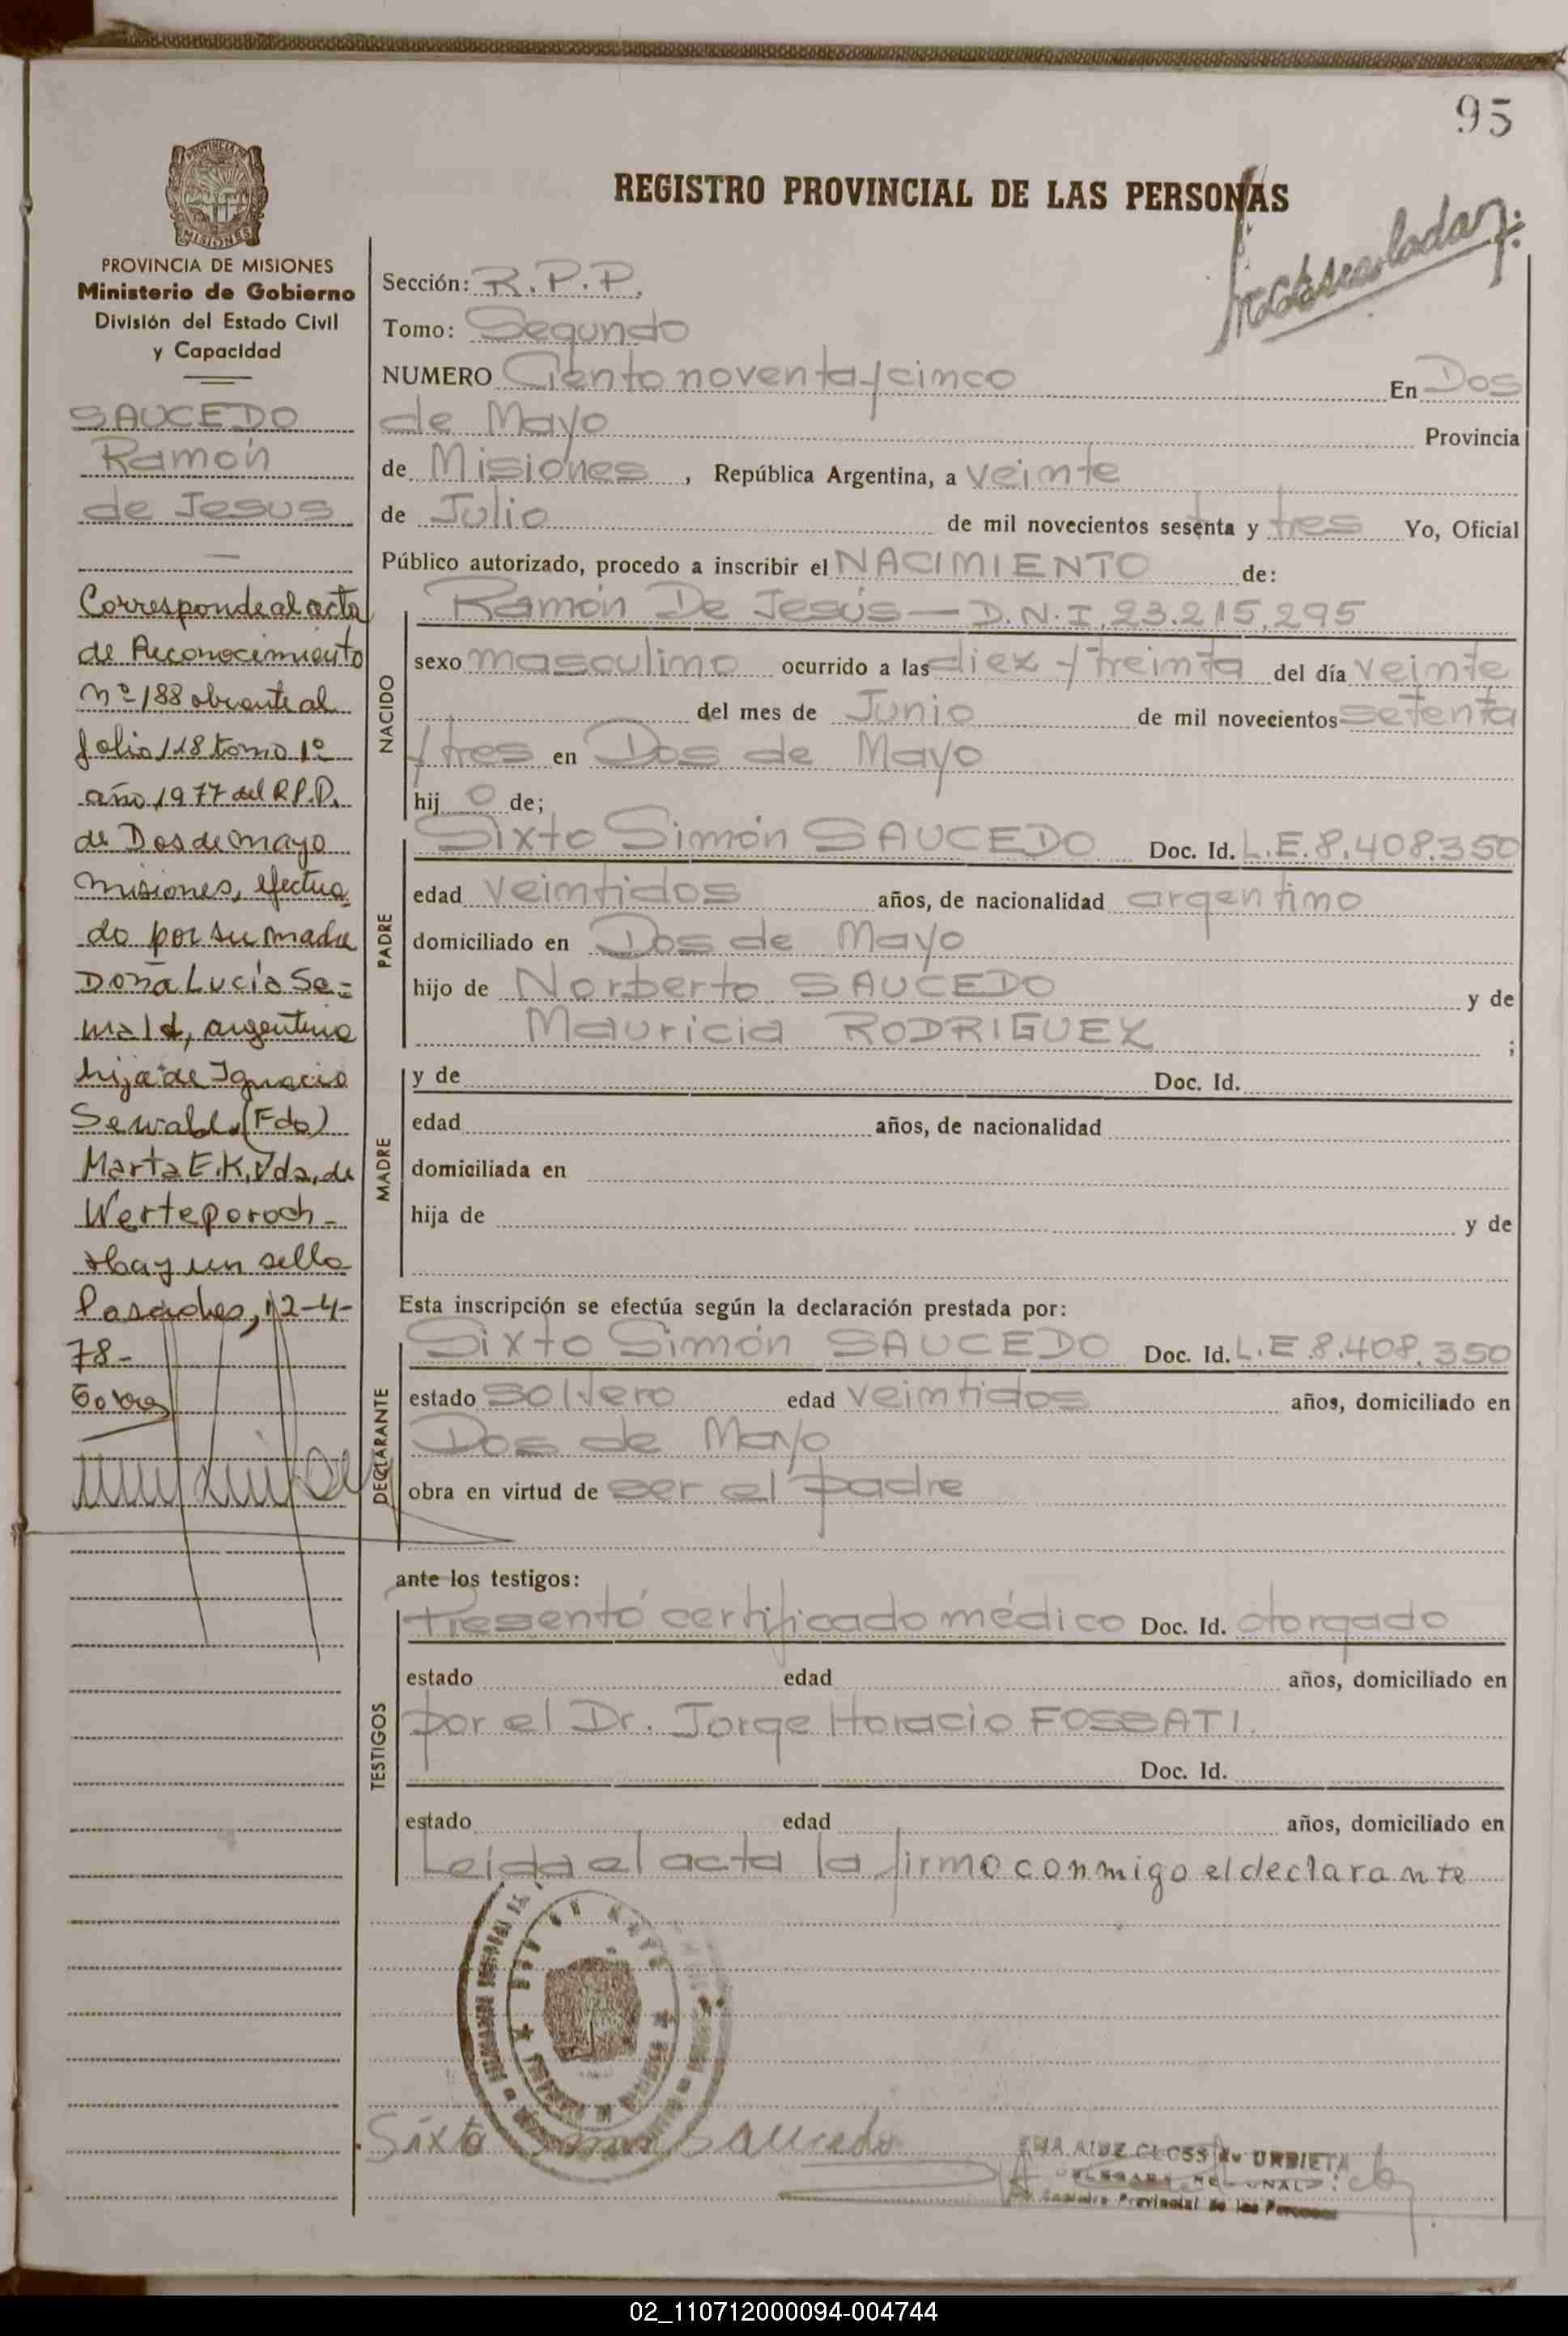 95
REGISTRO PROVINCIAL DE LAS PERSONAS
PROVINCIA DE MISIONES
Ministerio de Gobierno
División del Estado Civil
y Capacidad
SAUCEDO
Ramón
de Jesus
Corresponde al acta
de Reconocimiento
nº 188 obrante al
folio 118 tomo 1º
año 1977 del R.P.P.
de Dos de mayo
misiones, efectua
do por su madre
Doña Lucía Se=
wald, argentina
hija de Ignacio
Sewald. (Fdo)
Marta E.K. Vda. de
Werteporoch -
Hay un sello
Posadas, 12-4-
78-
Sección: R.P.P.
Tomo: Segundo
NUMERO Ciento noventa y cinco En Dos
de Mayo Provincia
de Misiones, República Argentina, a veinte
de Julio de mil novecientos sesenta y tres Yo, Oficial
Público autorizado, procedo a inscribir el NACIMIENTO de:
NACIDO
Ramón De Jesús — D.N.I. 23.215.295
sexo masculino ocurrido a las diez y treinta del día veinte
del mes de Junio de mil novecientos setenta
y tres en Dos de Mayo
hij o de;
PADRE
Sixto Simón SAUCEDO Doc. Id. L.E. 8.408.350
edad veintidos años, de nacionalidad argentino
domiciliado en Dos de Mayo
hijo de Norberto SAUCEDO y de
Mauricia RODRIGUEZ ;
MADRE
y de Doc. Id.
edad años, de nacionalidad
domiciliada en
hija de y de
Esta inscripción se efectúa según la declaración prestada por:
DECLARANTE
Sixto Simón SAUCEDO Doc. Id. L.E. 8.408.350
estado soltero edad veintidos años, domiciliado en
Dos de Mayo
obra en virtud de ser el padre
ante los testigos:
TESTIGOS
Presentó certificado médico Doc. Id. otorgado
estado edad años, domiciliado en
por el Dr. Jorge Horacio FOSSATI.
Doc. Id.
estado edad años, domiciliado en
Leida el acta la firmo conmigo el declarante
Sixto Simon Saucedo
CLOSS de URBIETA
Registro Provincial de las Personas
02_110712000094-004744